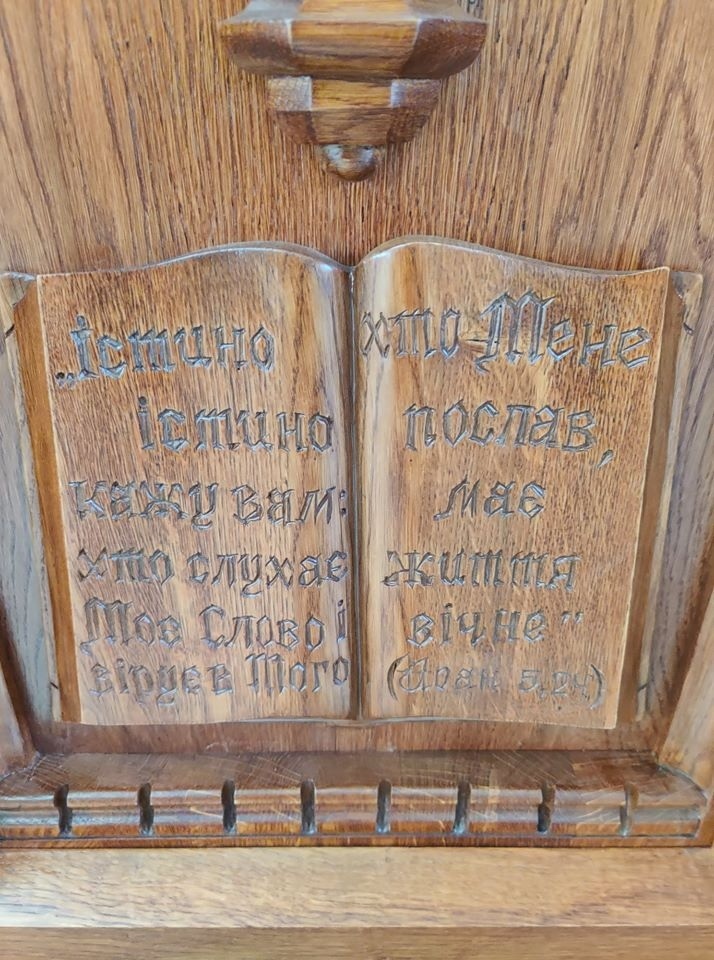 „Істино
істино
кажу вам:
хто слухає
Моє Слово і
вірує в Того
хто Мене
послав,
має
життя
вічне”
(Йоан 5,24)